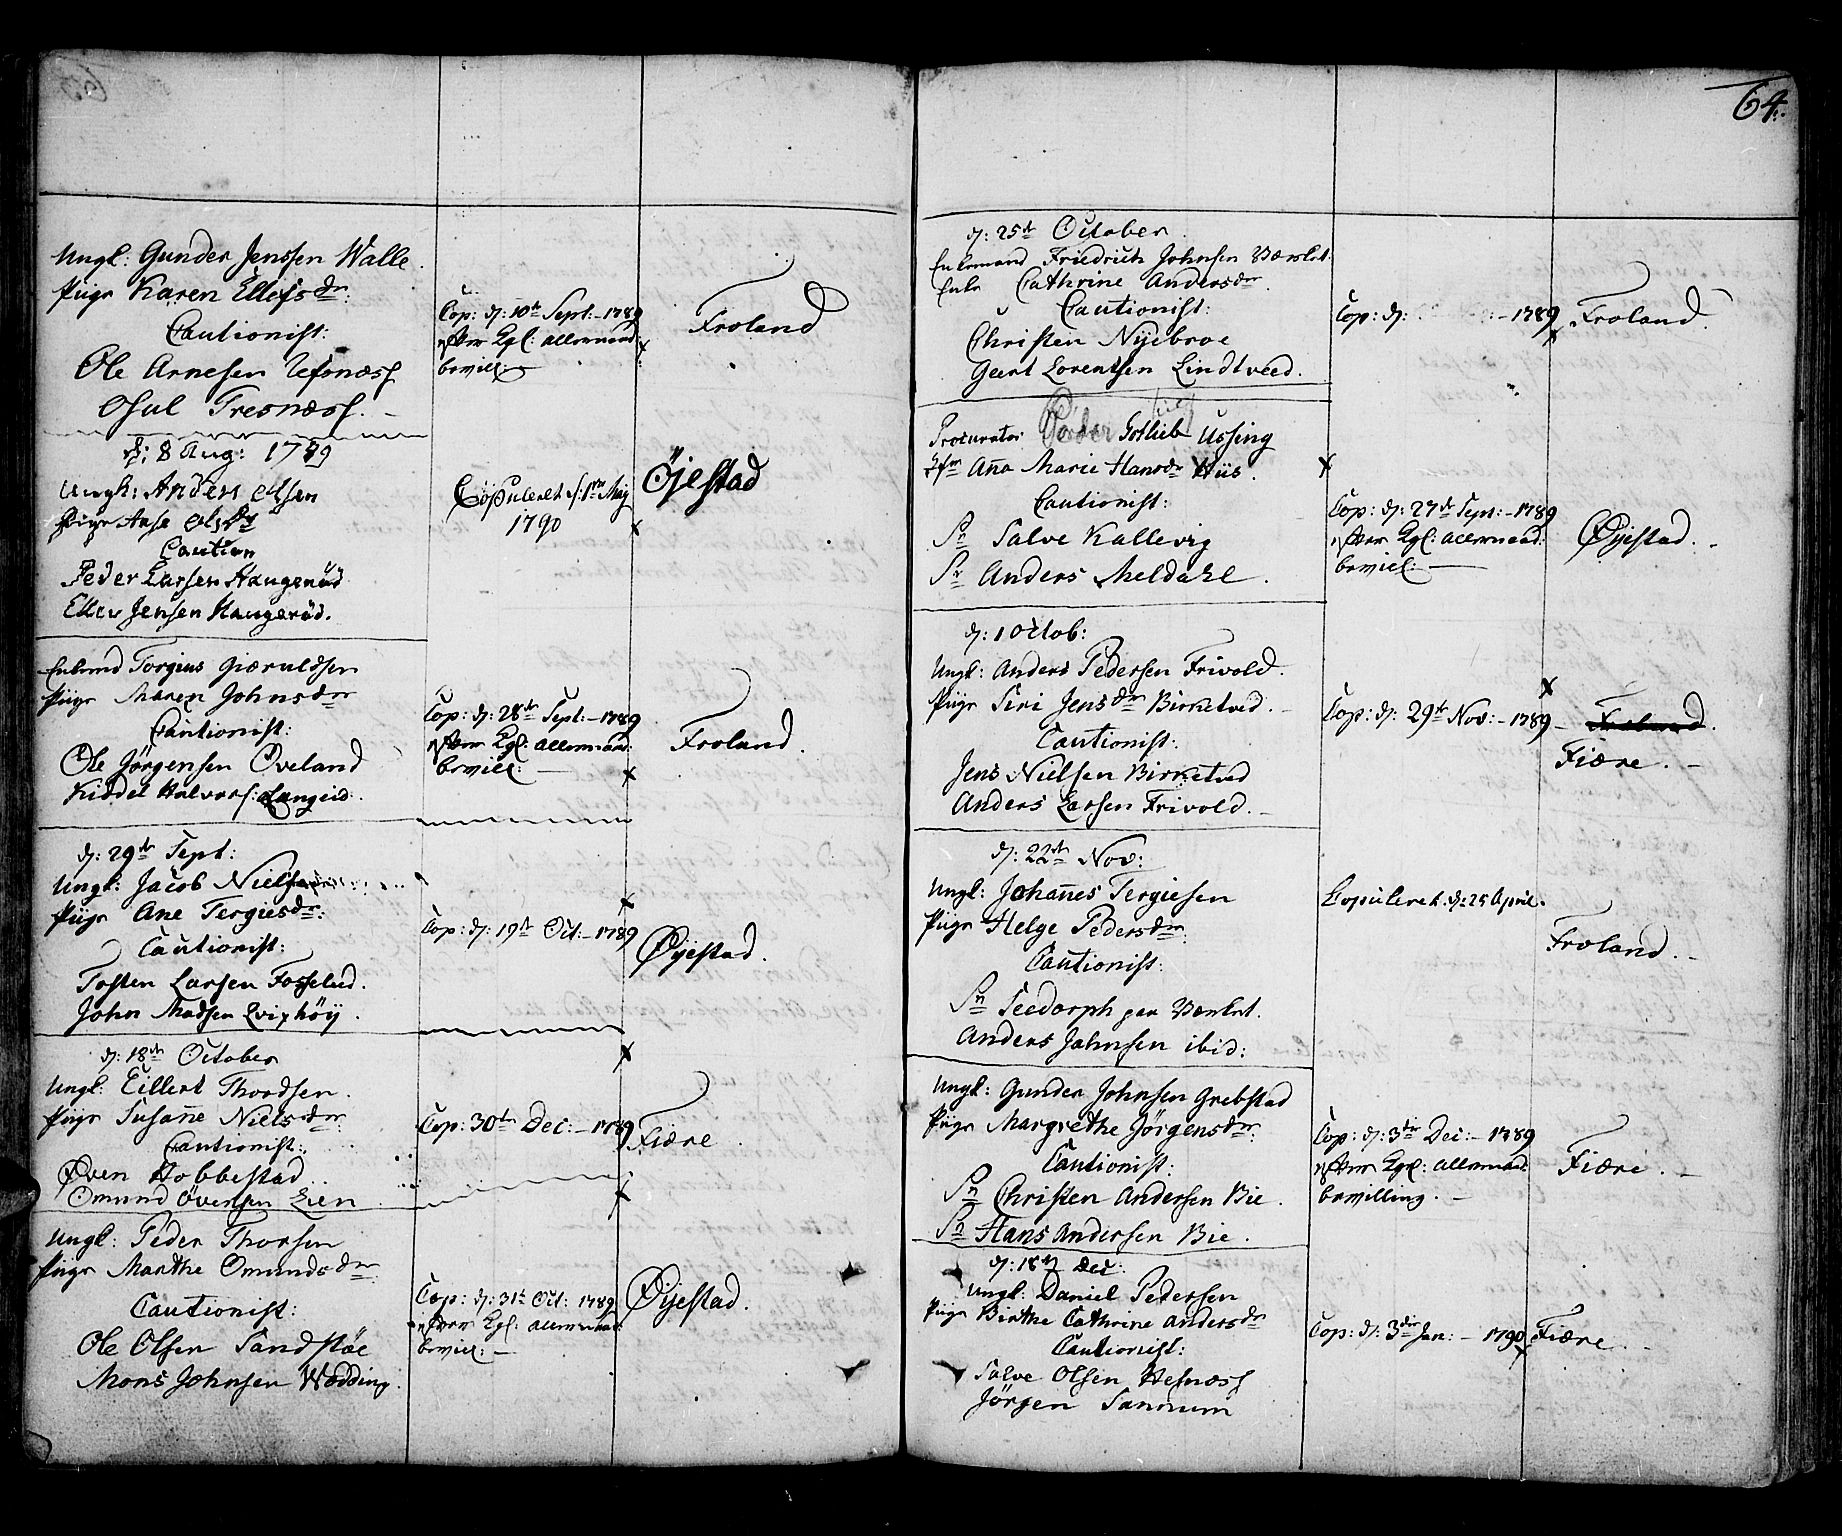 64.
Ungl: Gunder Jenssen Walle.
Piige Karen Ellefsdr:
Cautionist:
Ole Arnesen Refsnæss
Osul Tresnæss.
Cop: d: 10de Sept: 1789
efter Kgl: allernaad:
bevill:
Froland
d: 8 Aug: 1789
Ungk: Anders Olsen
Pige Anse
Caution
Peder Larsen Haugeröd
Ellev Jensen Haugeröd.
Copuleret d: 1ste Maij
1790
Øjestad
Enkemd Torgius Giæruldsen
Piige Maren Johnsdr
Cautionist:
Ole Jörgensen Öveland
Kiddel Halvors: Langeid.
Cop: d: 28de Sept: 1789
efter Kgl: allernaad:
bevill:
Froland.
d: 29de Sept:
Ungl: Jacob Nielsen
Piige Ane Tergiesdr:
Cautionist:
Tosten Larsen Fosselud.
John Madsen Qvixhöy.
Cop: d: 19de Oct: 1789
Øyestad.
d: 18de October
Ungl: Eillert Thordsen.
Piige Susañe Nielsdr:
Cautionist:
Øven Hobbestad
Omund Övensen Lien
Cop: 30de Dec: 1789
Fiære.
Ungl: Peder Thorsen
Piige Marthe Omundsdr
Cautionist:
Ole Olsen Sandstöe
Mons Johnsen Wædding.
Cop: d: 31te Oct: 1789
efter Kgl: allernaad:
bevill:
Øyestad.
d: 25de October.
Enkemand Friedrich Johnsen Værket.
Enke Cathrine Andersdr.
Cautionist:
Christen Nyebroe
Geert Lorentsen Lindtveed.
Cop: d: 1789
Froland.
Procurator Peder Gotlieb Ussing
Jfr Aña Marie Hansdr Hiis.
Cautionist:
Sr Salve Kallevig
Sr Anders Meldahl.
Cop: d: 27de Sept: 1789
efter Kgl: allernaad:
bevill:
Øyestad.
d: 1 Octob:
Ungl: Anders Pedersen Frivold.
Piige Siri Jensdr Birketved.
Cautionist:
Jens Nielsen Birketved
Anders Larsen Frivold.
Cop: d: 29de Nov: 1789
Froland.
Fiære.
d: 22de Nov:
Ungl: Johañes Tergiesen
Piige Helge Pedersdr:
Cautionist:
Sr Seedorph paa Værket.
Anders Johnsen ibid:
Copuleret d: 25 April.
Froland.
Ungl: Gunder Johnsen Grebstad
Piige Margrethe Jörgensdr:
Cautionist:
Sr Christen Andersen Bie.
Sr Hans Andersen Bie.
Cop: d: 3die Dec: 1789
efter Kgl: allernaad:
bevilling.
Fiære.
d: 18de Dec:
Ungl: Daniel Pedersen
Piige Birthe Cathrine Andersdr
Cautionist:
Salve Olsen Hesnæss
Jörgen Sannum
Cop: d: 3die Jan: 1790
Fiære.